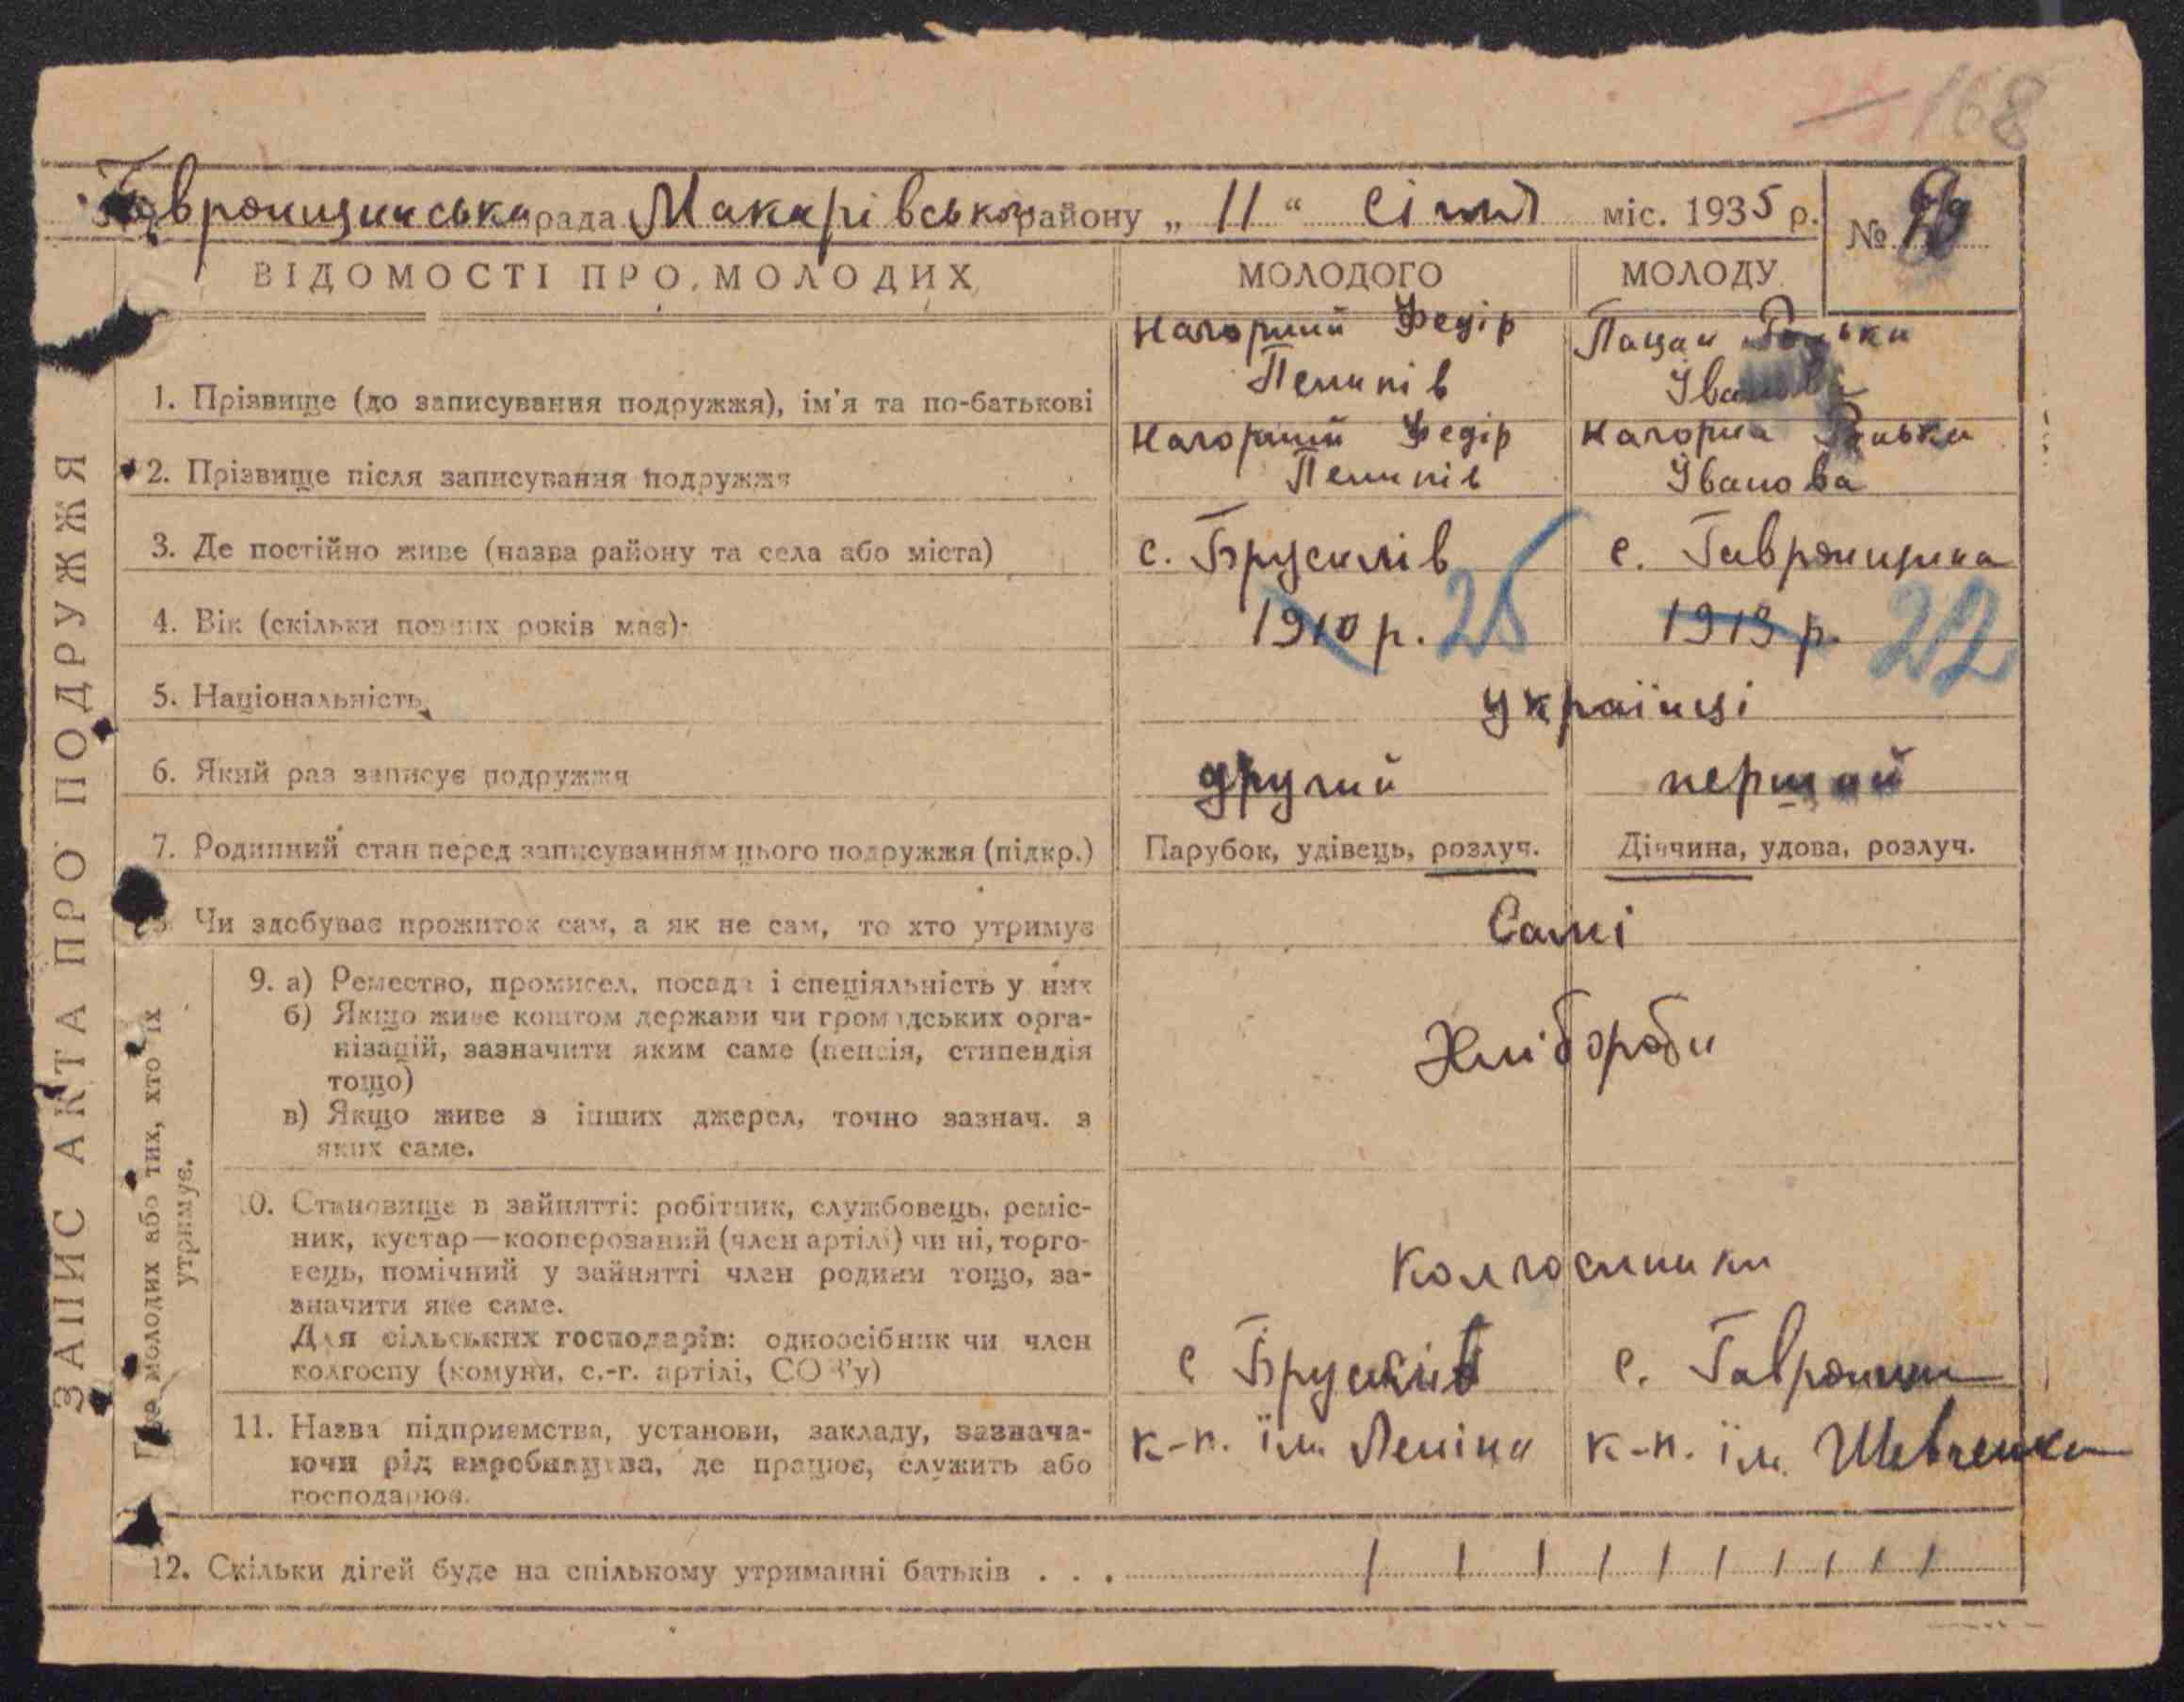 168
Гавронщинська рада Макарівського району „ 11 “ Січня міс. 1935 р. №
ВІДОМОСТІ ПРО МОЛОДИХ МОЛОДОГО МОЛОДУ
1. Прізвище (до записування подружжя), ім'я та по-батькові Нагорний Федір Пелипів Пацан Іванова
2. Прізвище після записування подружжя Нагорний Федір Пелипів Нагорна Іванова
3. Де постійно живе (назва району та села або міста) с. Брусилів с. Гавронщина
4. Вік (скільки повних років має) 1910 р. 25 1913 р. 22
5. Національність українці
6. Який раз записує подружжя другий перший
7. Родинний стан перед записуванням цього подружжя (підкр.) Парубок, удівець, розлуч. Дівчина, удова, розлуч.
8. Чи здобуває прожиток сам, а як не сам, то хто утримує Самі
9. а) Ремество, промисел, посада і спеціяльність у них
б) Якщо живе коштом держави чи громадських орга-
нізацій, зазначити яким саме (пенсія, стипендія
тощо)
Хлібороби
в) Якщо живе з інших джерел, точно зазнач. з
яких саме.
10. Становище в зайнятті: робітник, службовець, реміс-
ник, кустар—кооперований (член артілі) чи ні, торго-
вець, помічний у зайнятті член родини тощо, за-
значити яке саме.
Колгоспники
Для сільських господарів: одноосібник чи член
колгоспу (комуни, с.-г. артілі, СОЗ'у)
с Брусилів с. Гавронщин
11. Назва підприємства, установи, закладу, зазнача-
ючи рід виробництва, де працює, служить або
господарює.
к-п. ім. Леніна к-п. ім. Шевченка
12. Скільки дітей буде на спільному утриманні батьків . . .
ЗАПИС АКТА ПРО ПОДРУЖЖЯ
молодих або тих, хто їх
утримує.